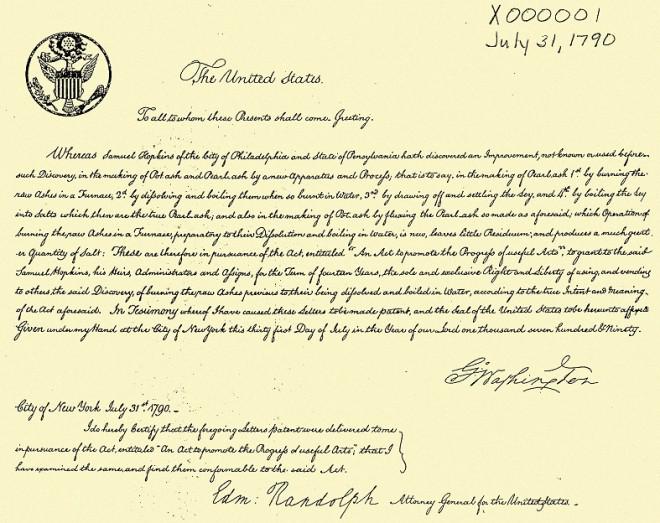 X000001
July 31, 1790
The United States.
To all to whom these Presents shall come. Greeting.
Whereas Samuel Hopkins of the City of Philadelphia and State of Pensylvania hath discovered an Improvement, not known or used before
such Discovery, in the making of Pot ash and Pearl ash by a new Apparatus and Process, that is to say, in the making of Pearl ash 1st. by burning the
raw Ashes in a Furnace, 2d. by dissolving and boiling them when so burnt in Water, 3rd. by drawing off and settling the Ley, and 4th. by boiling the Ley
into Salts which then are the true Pearl ash; and also in the making of Pot ash by fluxing the Pearl ash so made as aforesaid; which Operation of
burning the raw Ashes in a Furnace, preparatory to their Dissolution and boiling in Water, is new, leaves little Residuum; and produces a much great-
er Quantity of Salt: These are therefore in pursuance of the Act, entituled "An Act to promote the Progress of useful Arts", to grant to the said
Samuel Hopkins, his Heirs, Administrators and Assigns, for the Term of fourteen Years, the sole and exclusive Right and Liberty of using, and vending
to others the said Discovery, of burning the raw Ashes previous to their being dissolved and boiled in Water, according to the true Intent and Meaning
of the Act aforesaid. In Testimony whereof I have caused these Letters to be made patent, and the Seal of the United States to be hereunto affixed
Given under my Hand at the City of New York this thirty first Day of July in the Year of our Lord one thousand seven hundred & Ninety.
G. Washington
City of New York July 31st. 1790. -
I do hereby Certify that the foregoing Letters patent were delivered to me
in pursuance of the Act, entituled "An Act to promote the Progress of useful Arts"; that I
have examined the same, and find them conformable to the said Act.
Edm: Randolph Attorney General for the United States.